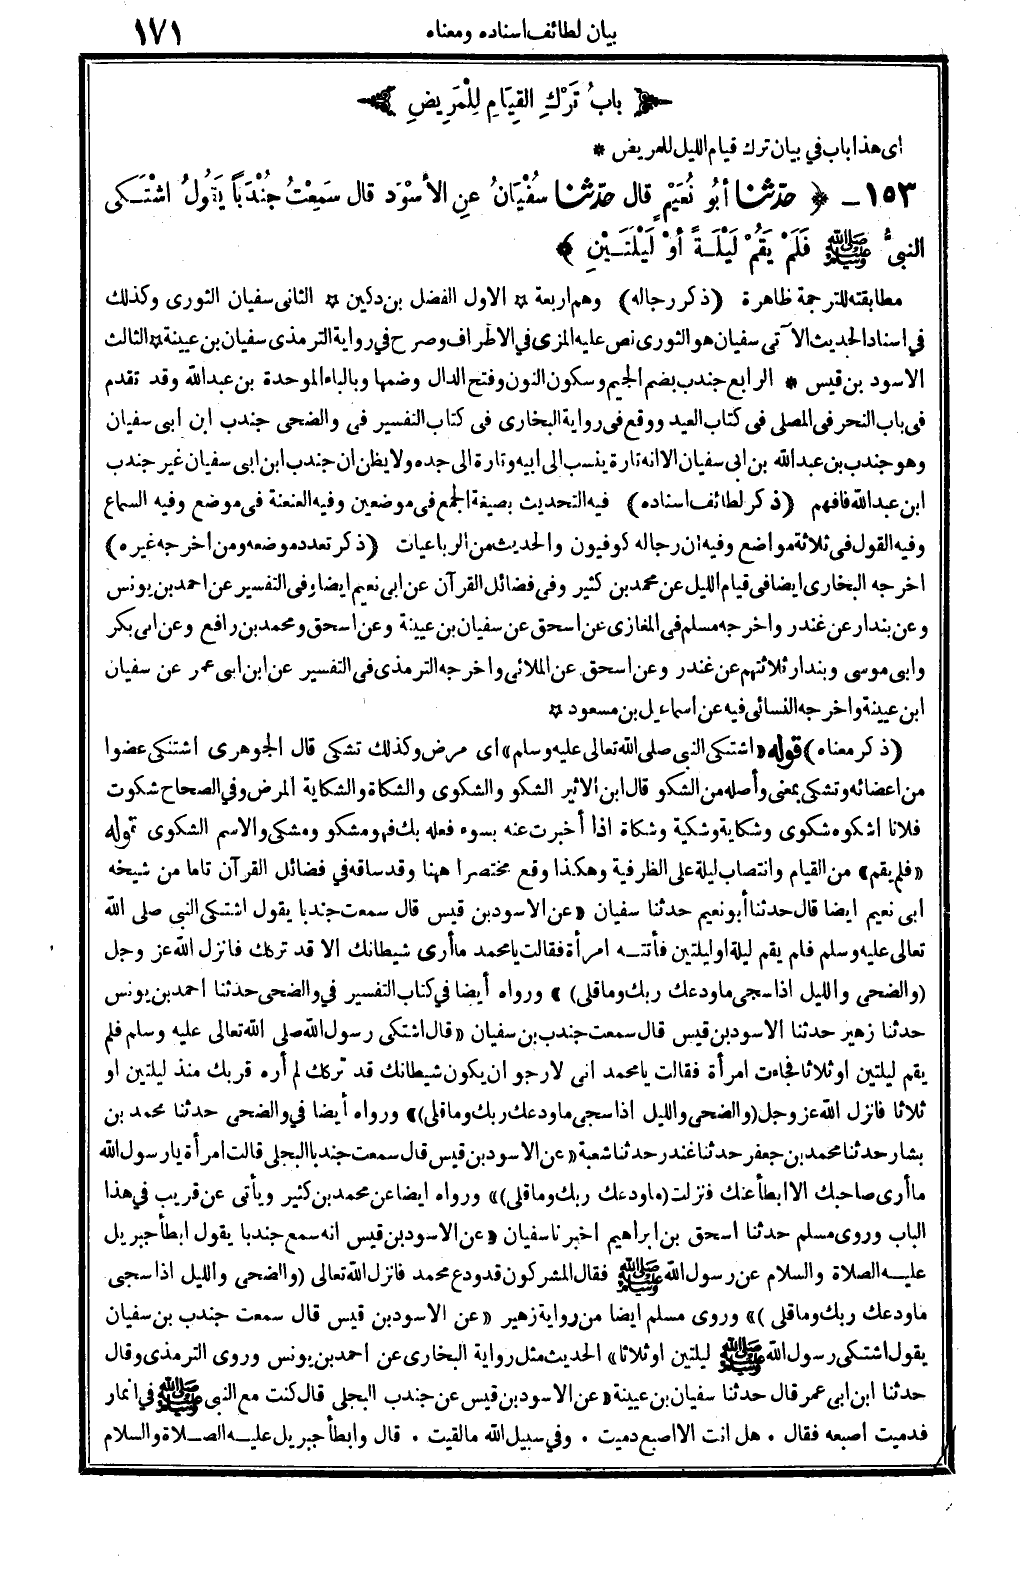 بيان لطائف اسناده ومعناه ١٧١
باب تَرْكِ القِيَامِ لِلْمَرِيضِ
اى هذا باب في بيان ترك قيام الليل للمريض *
١٥٣ ـ ﴿ حدّثنا أبُو نُعَيْمٍ قال حدّثنا سُفْيَانُ عنِ الأسْوَدِ قال سَمِعْتُ جُنْدَباً يَقُولُ اشْتَـكَى
النبيُّ ﷺ فَلَمْ يَقُمْ لَيْلَـةً أوْ لَيْلَتَـيْنِ ﴾
مطابقته للترجمة ظاهرة (ذكر رجاله) وهم اربعة ☆ الاول الفضل بن دكين ☆ الثانى سفيان الثورى وكذلك
في اسناد الحديث الآتى سفيان هو الثورى نص عليه المزى في الاطراف وصرح في رواية الترمذى سفيان بن عيينة ☆ الثالث
الاسود بن قيس * الرابع جندب بضم الجيم وسكون النون وفتح الدال وضمها وبالباء الموحدة بن عبد الله وقد تقدم
فى باب النحر فى المصلى فى كتاب العيد ووقع فى رواية البخارى فى كتاب التفسير فى والضحى جندب ابن ابى سفيان
وهو جندب بن عبد الله بن ابى سفيان الا انه تارة ينسب الى ابيه وتارة الى جده ولا يظن ان جندب ابن ابى سفيان غير جندب
ابن عبد الله فافهم (ذكر لطائف اسناده) فيه التحديث بصيغة الجمع فى موضعين وفيه العنعنة فى موضع وفيه السماع
وفيه القول فى ثلاثة مواضع وفيه ان رجاله كوفيون والحديث من الرباعيات (ذكر تعدد موضعه ومن اخرجه غيره)
اخرجه البخارى ايضا فى قيام الليل عن محمد بن كثير وفى فضائل القرآن عن ابى نعيم ايضا وفى التفسير عن احمد بن يونس
وعن بندار عن غندر واخرجه مسلم فى المغازى عن اسحق عن سفيان بن عيينة وعن اسحق ومحمد بن رافع وعن ابى بكر
وابى موسى وبندار ثلاثتهم عن غندر وعن اسحق عن الملائى واخرجه الترمذى فى التفسير عن ابن ابى عمر عن سفيان
ابن عيينة واخرجه النسائى فيه عن اسماعيل بن مسعود ☆
(ذكر معناه) قوله «اشتكى النبى صلى الله تعالى عليه وسلم» اى مرض وكذلك تشكى قال الجوهرى اشتكى عضوا
من اعضائه وتشكى بمعنى وأصله من الشكو قال ابن الاثير الشكو والشكوى والشكاة والشكاية المرض وفي الصحاح شكوت
فلانا اشكوه شكوى وشكاية وشكية وشكاة اذا أخبرت عنه بسوء فعله بك فهو مشكو ومشكى والاسم الشكوى قوله
«فلم يقم» من القيام وانتصاب ليلة على الظرفية وهكذا وقع مختصرا ههنا وقد ساقه في فضائل القرآن تاما من شيخه
ابى نعيم ايضا قال حدثنا أبو نعيم حدثنا سفيان «عن الاسود بن قيس قال سمعت جندبا يقول اشتكى النبى صلى الله
تعالى عليه وسلم فلم يقم ليلة او ليلتين فأتتـه امرأة فقالت يا محمد ما أرى شيطانك الا قد تركك فانزل الله عز وجل
(والضحى والليل اذا سجى ما ودعك ربك وما قلى) » ورواه أيضا في كتاب التفسير في والضحى حدثنا احمد بن يونس
حدثنا زهير حدثنا الاسود بن قيس قال سمعت جندب بن سفيان «قال اشتكى رسول الله صلى الله تعالى عليه وسلم فلم
يقم ليلتين او ثلاثا فجاءت امرأة فقالت يا محمد انى لارجو ان يكون شيطانك قد تركك لم أره قربك منذ ليلتين او
ثلاثا فانزل الله عز وجل (والضحى والليل اذا سجى ما ودعك ربك وما قلى)» ورواه أيضا في والضحى حدثنا محمد بن
بشار حدثنا محمد بن جعفر حدثنا غندر حدثنا شعبة «عن الاسود بن قيس قال سمعت جندبا البجلى قالت امرأة يا رسول الله
ما أرى صاحبك الا ابطأ عنك فنزلت (ما ودعك ربك وما قلى)» ورواه ايضا عن محمد بن كثير ويأتى عن قريب في هذا
الباب وروى مسلم حدثنا اسحق بن ابراهيم اخبرنا سفيان «عن الاسود بن قيس انه سمع جندبا يقول ابطأ جبريل
عليـه الصلاة والسلام عن رسول الله ﷺ فقال المشركون قد ودع محمد فانزل الله تعالى (والضحى والليل اذا سجى
ما ودعك ربك وما قلى )» وروى مسلم ايضا من رواية زهير «عن الاسود بن قيس قال سمعت جندب بن سفيان
يقول اشتكى رسول الله ﷺ ليلتين او ثلاثا» الحديث مثل رواية البخارى عن احمد بن يونس وروى الترمذى وقال
حدثنا ابن ابى عمر قال حدثنا سفيان بن عيينة «عن الاسود بن قيس عن جندب البجلى قال كنت مع النبى ﷺ في انمار
فدميت أصبعه فقال . هل انت الا اصبع دميت . وفي سبيل الله ما لقيت . قال وابطأ جبريل عليـه الصـلاة والسلام